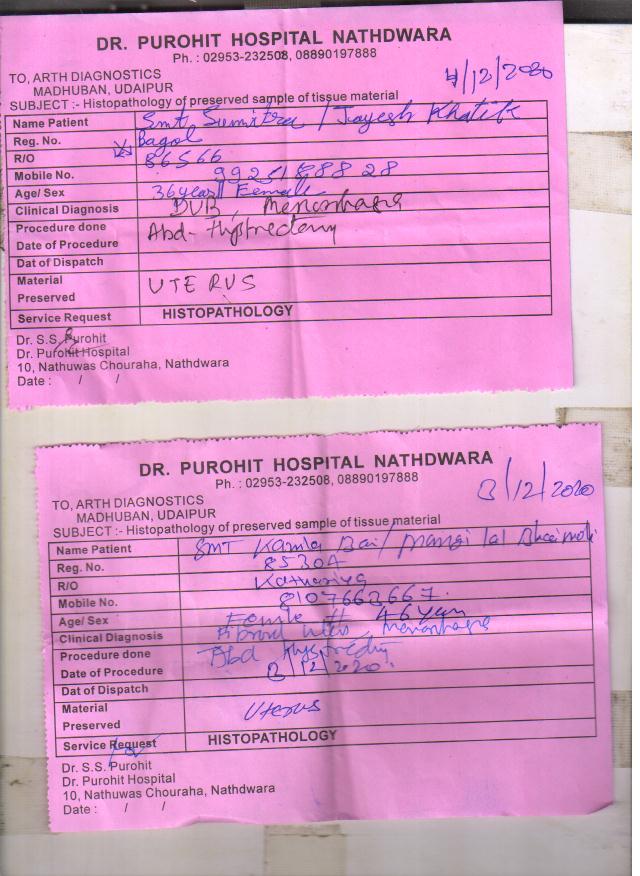 DR. PUROHIT HOSPITAL NATHDWARA
Ph. : 02953-232508, 08890197888
4/12/2020
TO, ARTH DIAGNOSTICS
MADHUBAN, UDAIPUR
SUBJECT :- Histopathology of preserved sample of tissue material
Name Patient Smt Sumitra / Jayesh Khatik
Reg. No. Bagol
R/O 86566
Mobile No.
Age/ Sex 36 year Female
Clinical Diagnosis DUB, Menorrhagia
Procedure done Abd- Hystrectomy
Date of Procedure
Dat of Dispatch
Material
Preserved UTERUS
Service Request HISTOPATHOLOGY
Dr. S.S. Purohit
Dr. Purohit Hospital
10, Nathuwas Chouraha, Nathdwara
Date : / /
DR. PUROHIT HOSPITAL NATHDWARA
Ph. : 02953-232508, 08890197888
/12/2020
TO, ARTH DIAGNOSTICS
MADHUBAN, UDAIPUR
SUBJECT :- Histopathology of preserved sample of tissue material
Name Patient SMT Kamla Bai/ mangi lal
Reg. No.
R/O
Mobile No. 8107663667
Age/ Sex Female 46 year
Clinical Diagnosis Fibroid uterus, Menorrhagia
Procedure done Abd Hystrectomy
Date of Procedure /12/2020
Dat of Dispatch
Material
Preserved Uterus
Service Request HISTOPATHOLOGY
Dr. S.S. Purohit
Dr. Purohit Hospital
10, Nathuwas Chouraha, Nathdwara
Date : / /